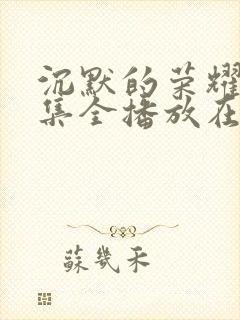 沉默的荣耀
集全播放在
蘇幾禾